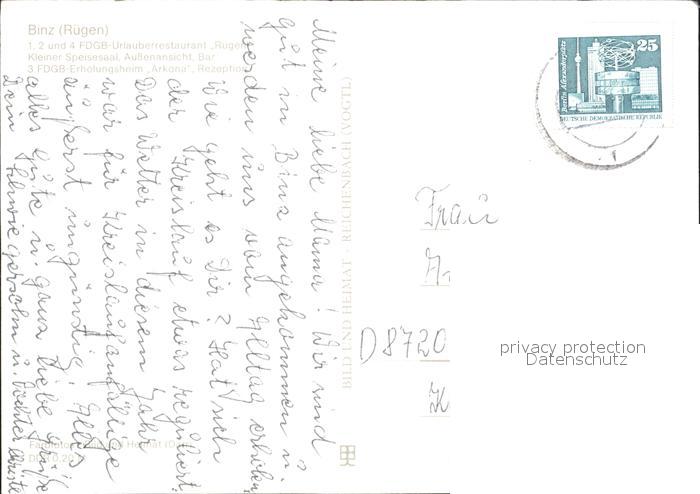 Binz (Rügen)
1, 2 und 4 FDGB-Urlauberrestaurant „Rügen"
Kleiner Speisesaal, Außenansicht, Bar
3 FDGB-Erholungsheim „Arkona", Rezeption
Meine liebe Mama! Wir sind
gut in Binz angekommen u.
werden uns vom Alltag erholen.
Wie geht es Dir? Hat sich
der Kreislauf etwas reguliert.
Das Wetter in diesem Jahr
war für Kreislaufanfällige
äußerst ungünstig! Alles
alles Gute u. ganz liebe Grüße
Dein Schwiegersohn u. Tochter
BILD UND HEIMAT · REICHENBACH (VOGTL)
Berlin, Alexanderplatz
25
DEUTSCHE DEMOKRATISCHE REPUBLIK
Frau
D 8720
K
privacy protection
Datenschutz